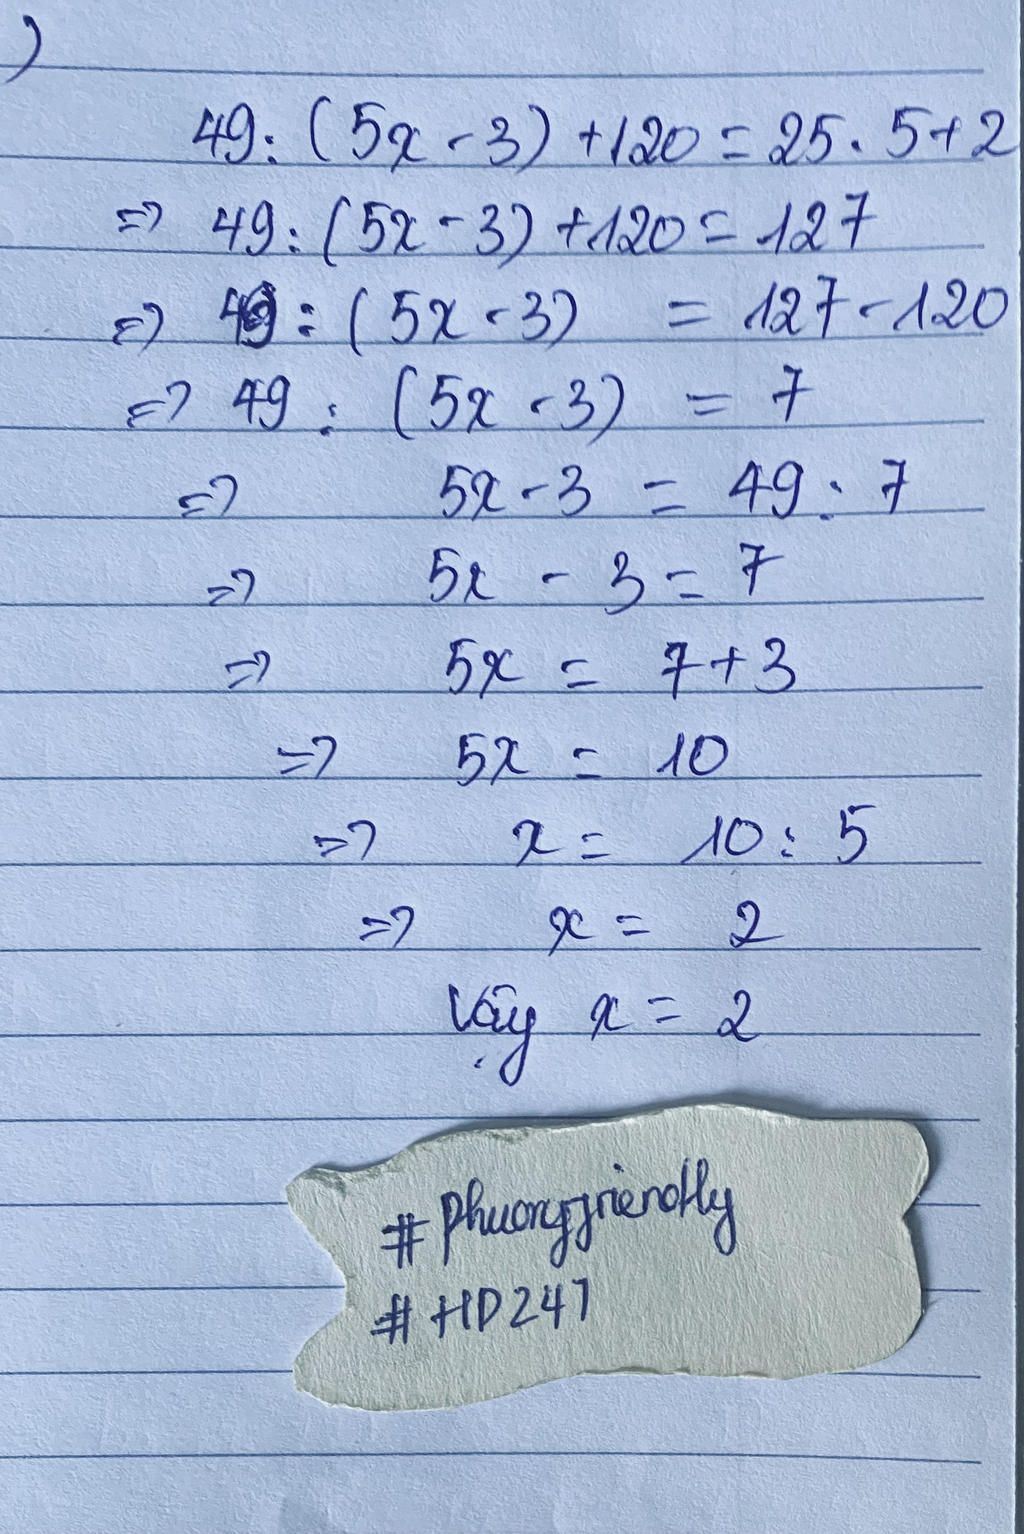 )
49 : (5x - 3) + 120 = 25 . 5 + 2
=> 49 : (5x - 3) + 120 = 127
=> 49 : (5x - 3) = 127 - 120
=> 49 : (5x - 3) = 7
=> 5x - 3 = 49 : 7
=> 5x - 3 = 7
=> 5x = 7 + 3
=> 5x = 10
=> x = 10 : 5
=> x = 2
Vậy x = 2
# phuongfriendly
# HD247